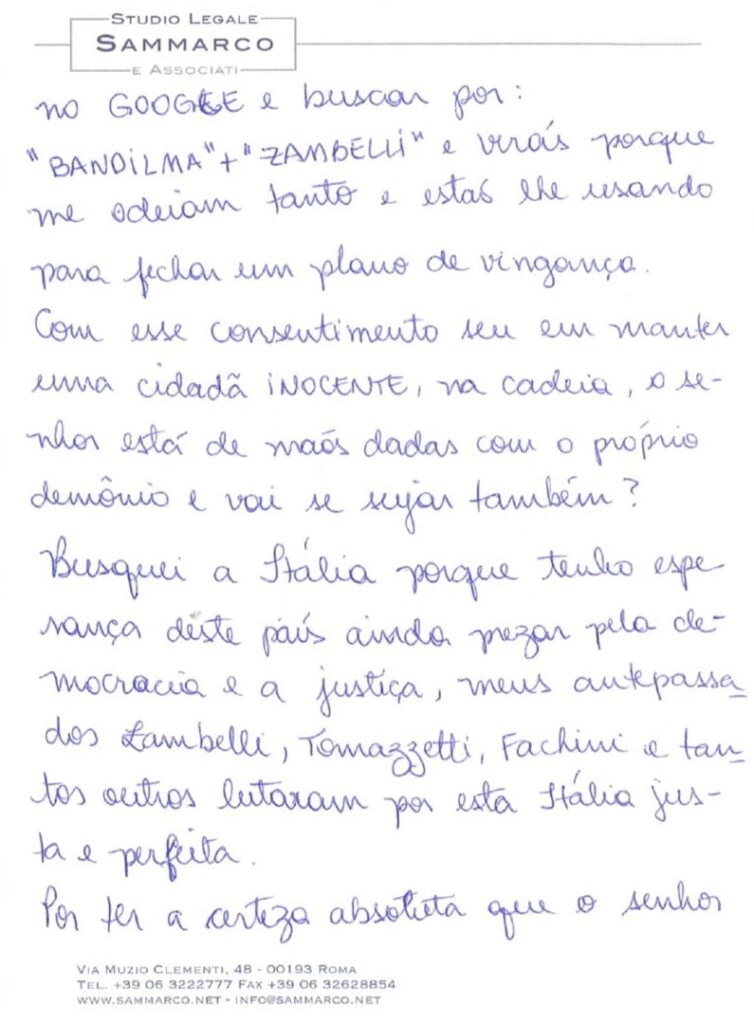 STUDIO LEGALE
SAMMARCO
E ASSOCIATI
no GOOGLE e buscar por:
"BANDILMA"+"ZAMBELLI" e virás porque
me odeiam tanto e estaś lhe usando
para fechar um plano de vingança.
Com esse consentimento seu em manter
uma cidadã iNOCENTE, na cadeia, o se-
nhor está de maõs dadas com o próprio
demônio e vai se sujar também?
Busquei a Itália porque tenho espe-
rança deste país ainda prezar pela de-
mocracia e a justiça, meus antepassa-
dos Zambelli, Tomazzetti, Fachini e tan-
tos outros lutaram por esta Itália jus-
ta e perfeita.
Por ter a certeza absoluta que o senhor
VIA MUZIO CLEMENTI, 48 - 00193 ROMA
TEL. +39 06 3222777 FAX +39 06 32628854
WWW.SAMMARCO.NET - INFO@SAMMARCO.NET